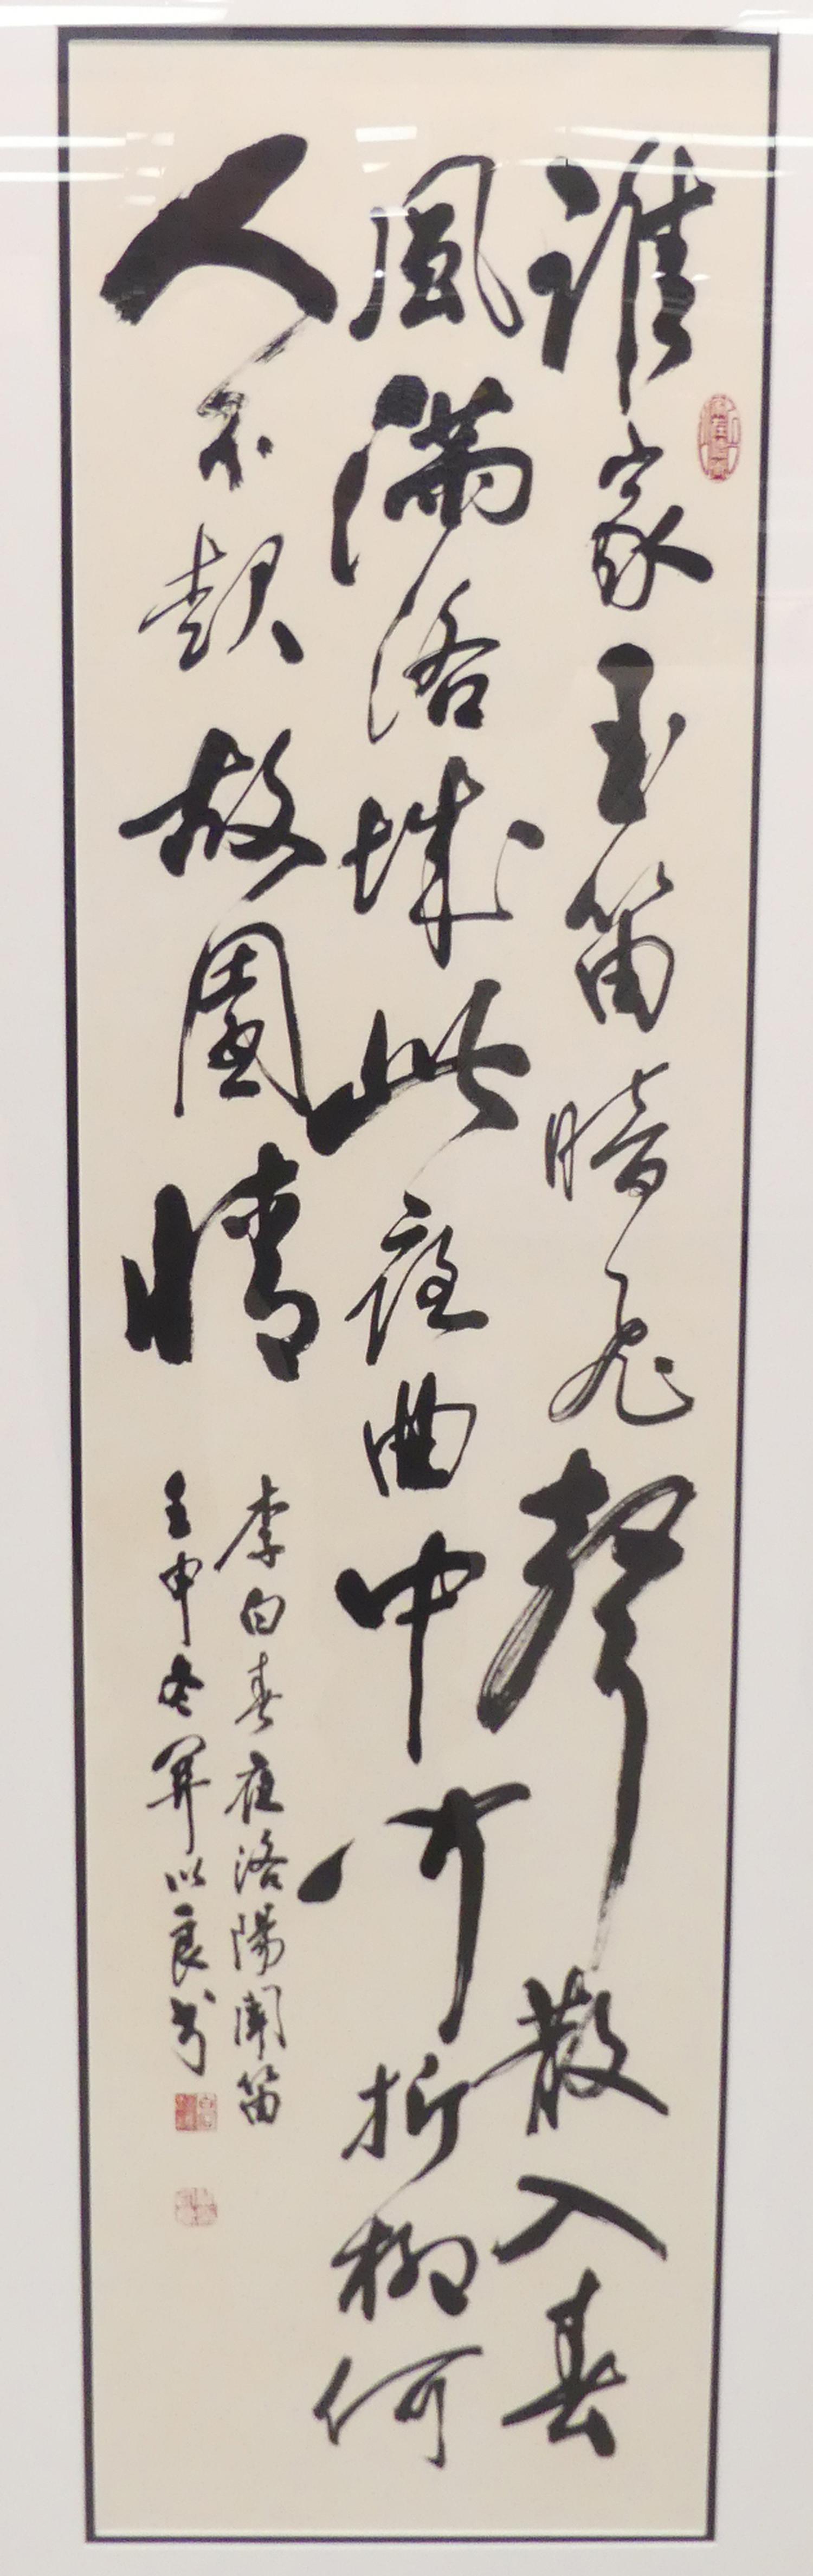 誰家玉笛暗飛聲散入春
風滿洛城此夜曲中聞折柳何
人不起故園情
李白春夜洛陽聞笛
壬申冬以良书